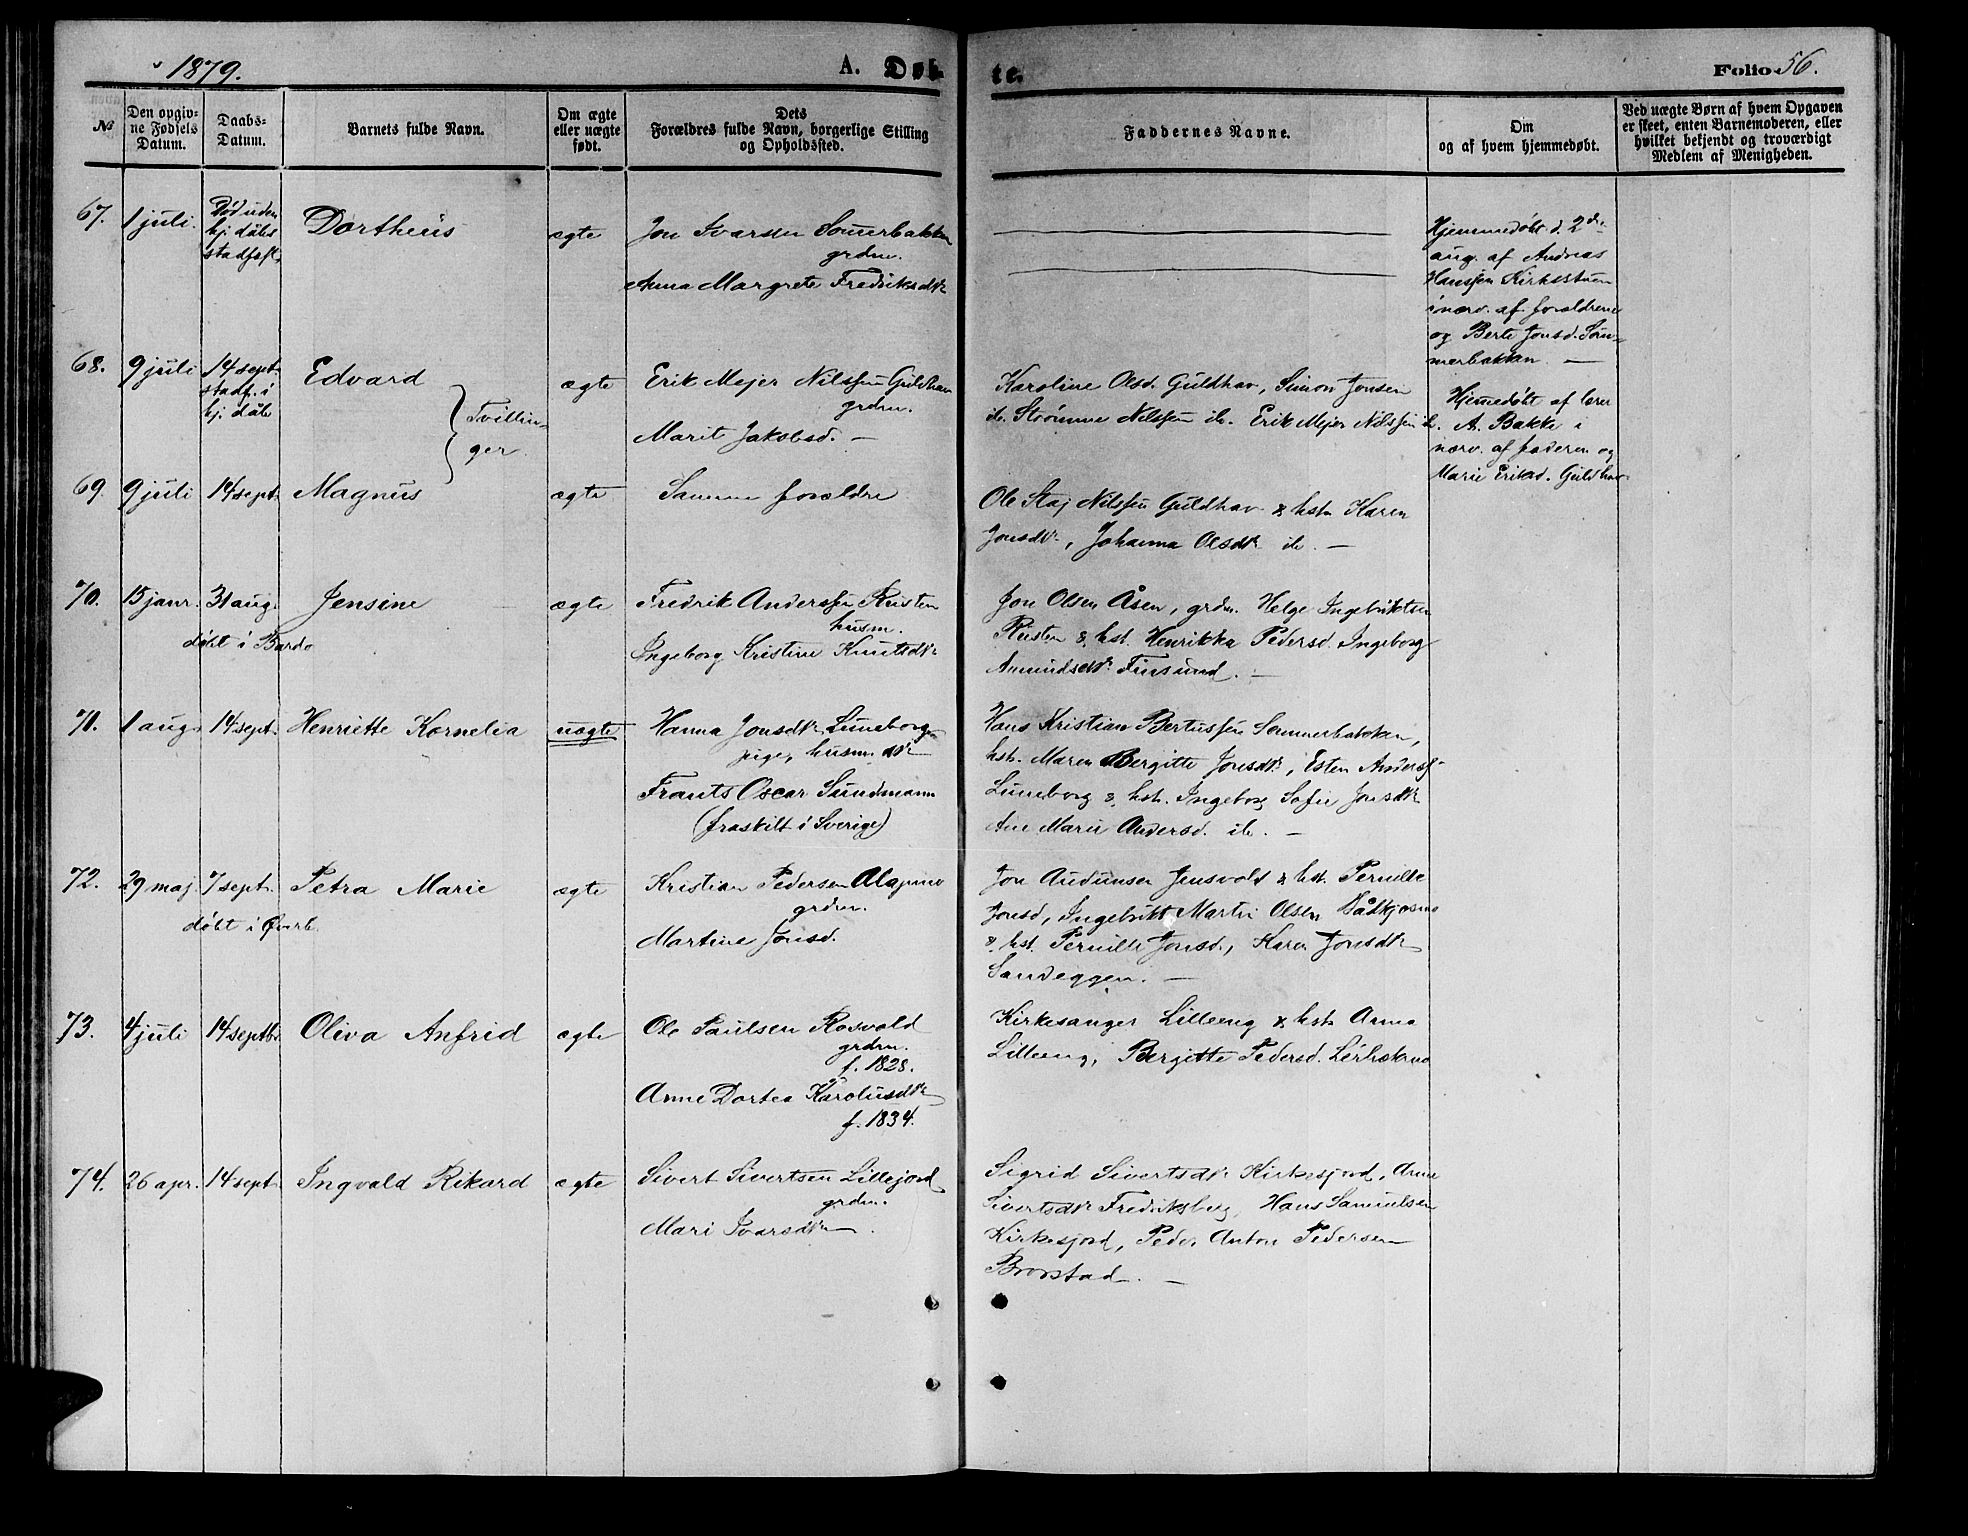 1879.
A. Døb-
te.
Folio 56.
№
Den opgiv-
ne Fødsels
Datum.
Daabs-
Datum.
Barnets fulde Navn.
Om ægte
eller uægte
født.
Dets
Forældres fulde Navn, borgerlige Stilling
og Opholdssted.
Faddernes Navne.
Om
og af hvem hjemmedøbt.
Ved uægte Børn af hvem Opgaven
er skeet, enten Barnemoderen, eller
hvilket bekjendt og troværdigt
Medlem af Menigheden.
67.
1 juli.
Død uden
hj. dåbs
stadfest.
Dortheus
ægte
Jon Ivarsen Sommerbakken
grdm.
Anna Margrete Fredriksdtr
Hjemmedøbt d. 2den
aug. af Andreas
Hanssen Kirkestuen
i nærv. af forældrene
og Berte Jonsd. Som-
merbakken —
68.
9 juli
14 sept.
stadf. i
hj. dåb
Edvard
Tvillin-
ger
ægte
Erik Mejer Nilssen Guldhav
grdm.
Marit Jakobsd. —
Karoline Olsd. Guldhav, Simon Jonsen
ib. Strømme Nilssen ib. Erik Mejer Nilssen ib.
Hjemedøbt af lærer
A. Bakke i
nærv. af faderen og
Marie Eriksd. Guldhav
69.
9 juli
14 sept.
Magnus
ægte
Samme forældre
Ole Staj Nilssen Guldhav & hst. Karen
Jonsdtr, Johanna Olsdtr ib. —
70.
15 janr.
31 aug.
døbt i Bardo
Jensine
ægte
Fredrik Anderssen Rusten
husm.
Ingeborg Kristine Knutsdtr
Jon Olsen Åsen, grdm. Helge Ingebriktsen
Rusten & hst. Henrikka Pedersd. Ingeborg
Amundsdtr Finsund. —
71.
1 aug.
14 sept.
Henriette Kornelia
uægte
Hanna Jonsdtr Luneborg
pige, husm. dtr
Frants Oscar Sundmann
(fraskilt i Sverige)
Hans Kristian Bertussen Sommerbakken,
hst. Maren Bergitte Jonsdtr, Esten Anderss.
Luneborg & hst. Ingeborg Sofie Jonsdtr
Ane Marie Andersd. ib. —
72.
29 maj
7 sept.
døbt i Øverb.
Petra Marie
ægte
Kristian Pedersen Alapmo
grdm.
Martine Jonsd.
Jon Audunsen Jensvold & hst. Pernille
Jonsd, Ingebrikt Martin Olsen
& hst. Pernille Jonsd., Karen Jonsdtr
Sandeggen. —
73.
4 juli
14 septbr
Oliva Anfrid
ægte
Ole Paulsen Rosvold
grdm.
f. 1828.
Anne Dortea Karolusdtr
f. 1834.
Kirkesanger Lilleeng & hst. Anna
Lilleeng, Bergitte Pedersd.
74.
26 apr.
14 sept.
Ingvald Rikard
ægte
Sivert Sivertsen Lillejord
grdm.
Mari Ivarsdtr
Sigrid Sivertsdtr Kirkesjord, Anne
Sivertsdtr Fredriksberg, Hans Samuelsen
Kirkesjord, Peder Anton Pedersen
Brorstad. —